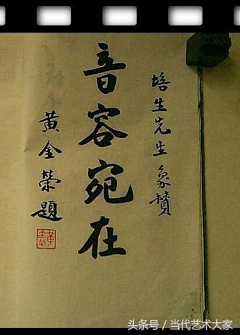 培生先生象贊
音容宛在
黃金榮題
头条号／当代艺术大家